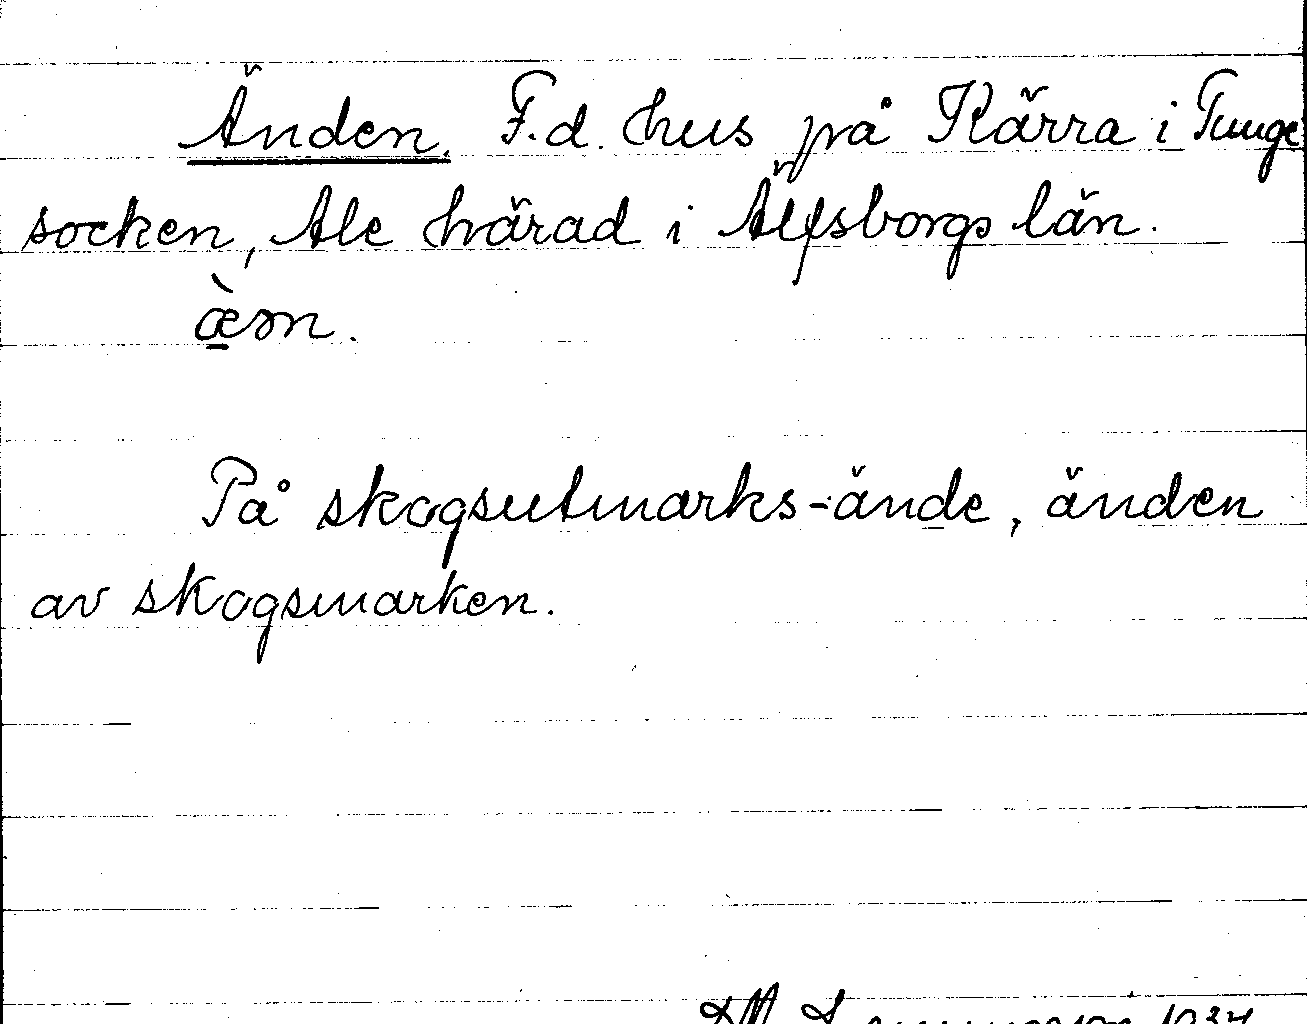 Änden. F.d. hus på Kärra i Tunge
socken, Ale härad i Älfsborgs län.
æ̀ən.
På skogsutmarks-ände, änden
av skogsmarken.